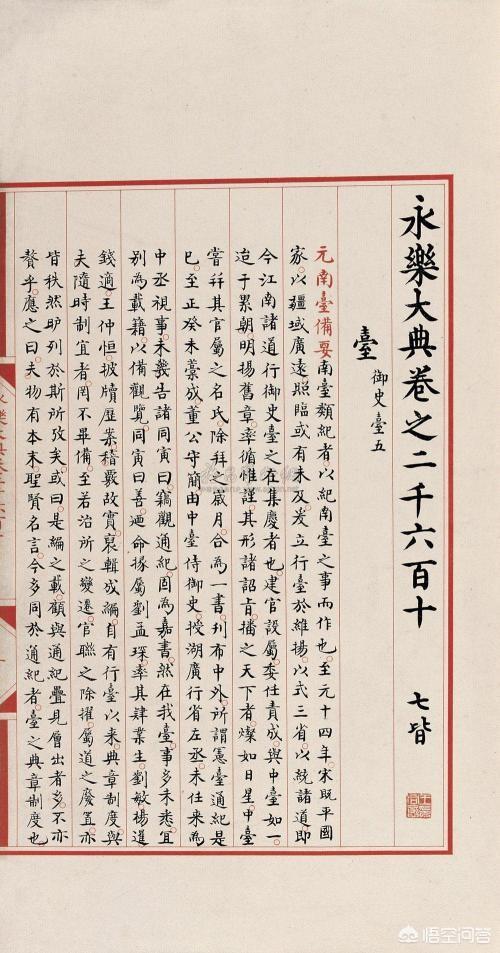 永樂大典卷之二千六百十 七皆
臺 御史臺五
元南臺備要南臺類紀者。以紀南臺之事而作也。至元十四年。宋既平。國
家以疆域廣遠。照臨或有未及。爰立行臺於維揚。以式三省。以統諸道。即
今江南諸道行御史臺之在集慶者也。建官設屬。委任責成。與中臺如一。
迨于累朝。明揚舊章。率循惟謹。其形諸詔旨。播之天下者。燦如日星。中臺
嘗稡其官屬之名氏。除拜之歲月。合為一書。刋布中外。所謂憲臺通紀是
已。至正癸未。藁成。董公守簡。由中臺侍御史。授湖廣行省左丞。未任。來為
中丞。視事未幾。告諸同寅曰。竊觀通紀。固為嘉書。然在我臺事多未悉。宜
別為載籍。以備觀覽。同寅曰善。迺命掾屬劉孟琛。率其肄業生劉敏楊進
錢適王仲恒。披牘歷案。稽覈故實。裒輯成編。自有行臺以來。典章制度。與
夫隨時制宜者。罔不畢備。至若治所之變遷。官聯之除擢。屬道之廢置。亦
皆秩然昉列。於斯所攷矣。或曰。是編之載。顧與通紀疊見層出者多。不亦
贅乎。應之曰。夫物有本末。聖賢名言。今多同於通紀者。臺之典章制度也。
悟空问答